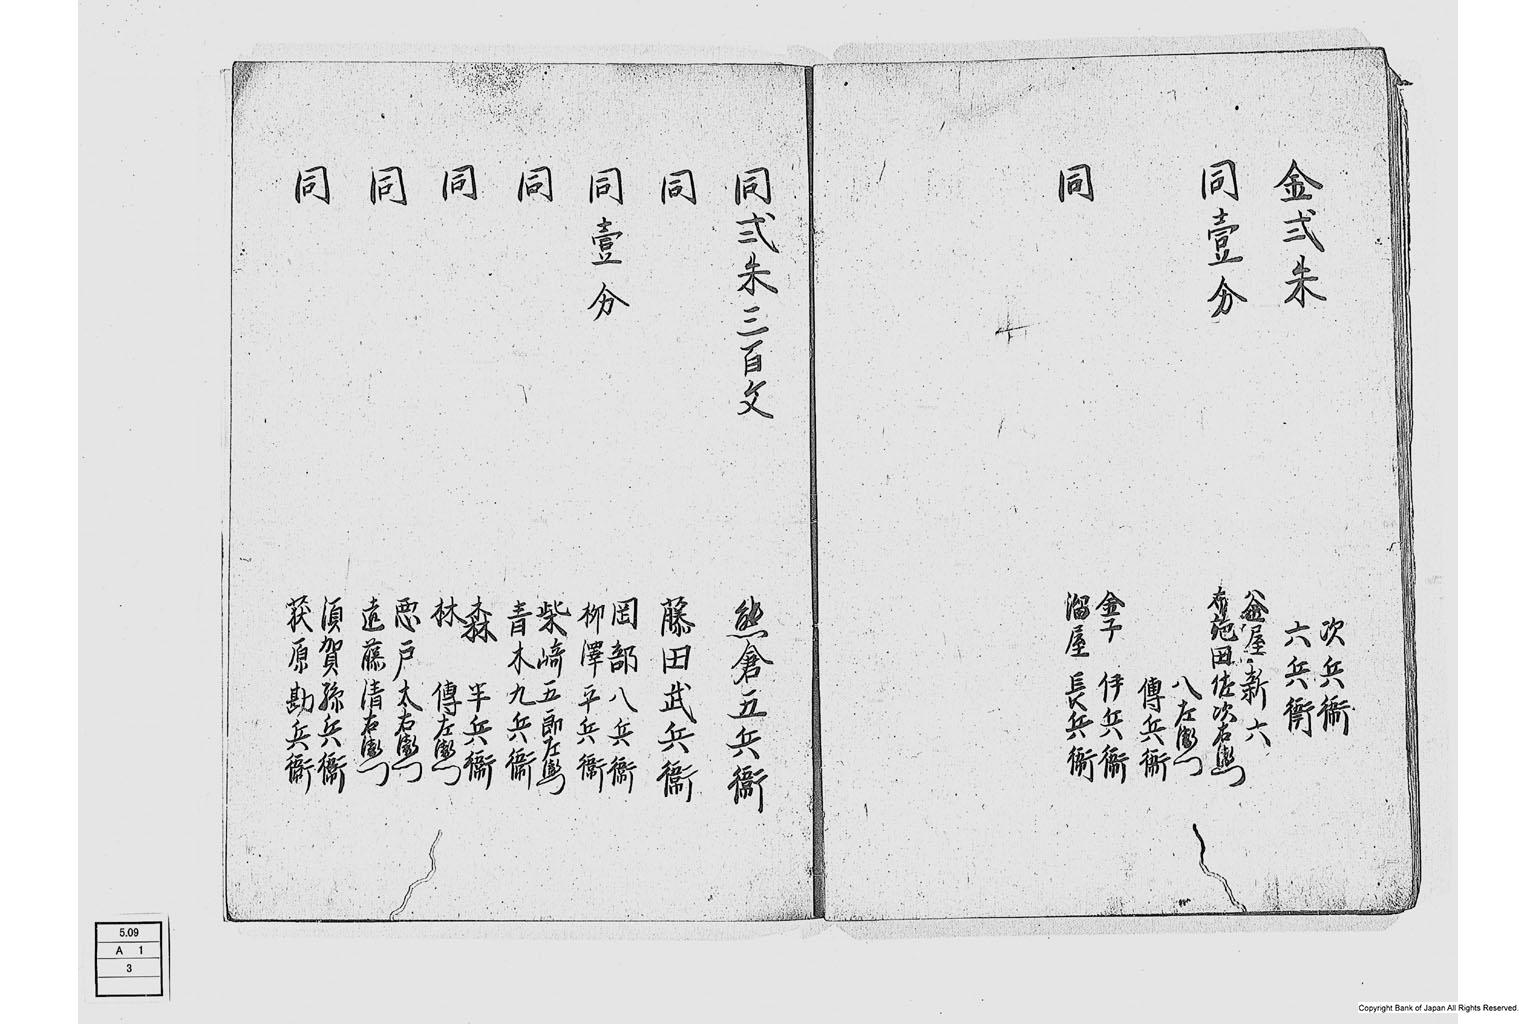 金弐朱
次兵衛
六兵衛
同壹分
釜屋新六
布施田佐次右衛門
八左衛門
傳兵衛
同
金子伊兵衛
溜屋長兵衛
同弐朱三百文
熊倉五兵衛
同
藤田武兵衛
同壹分
岡部八兵衛
柳澤平兵衛
同
柴﨑五郎左衛門
青木九兵衛
同
森半兵衛
林傳左衛門
同
戸太右衛門
遠藤清右衛門
同
須賀孫兵衛
荻原勘兵衛
5.09
A 1
3
Copyright Bank of Japan All Rights Reserved.